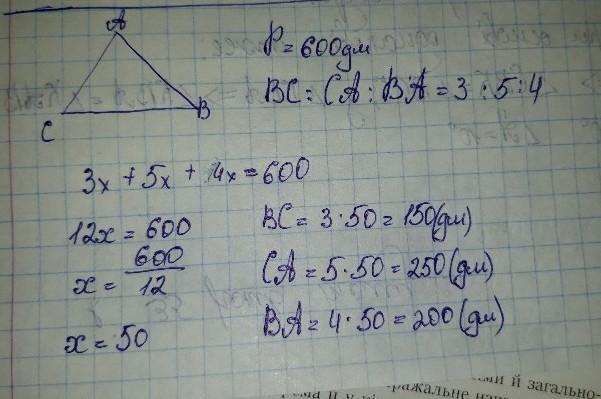 A
C
B
P = 600дм
BC : CA : BA = 3 : 5 : 4
3x + 5x + 4x = 600
12x = 600
x = 600/12
x = 50
BC = 3 · 50 = 150(дм)
CA = 5 · 50 = 250(дм)
BA = 4 · 50 = 200(дм)
й загально-